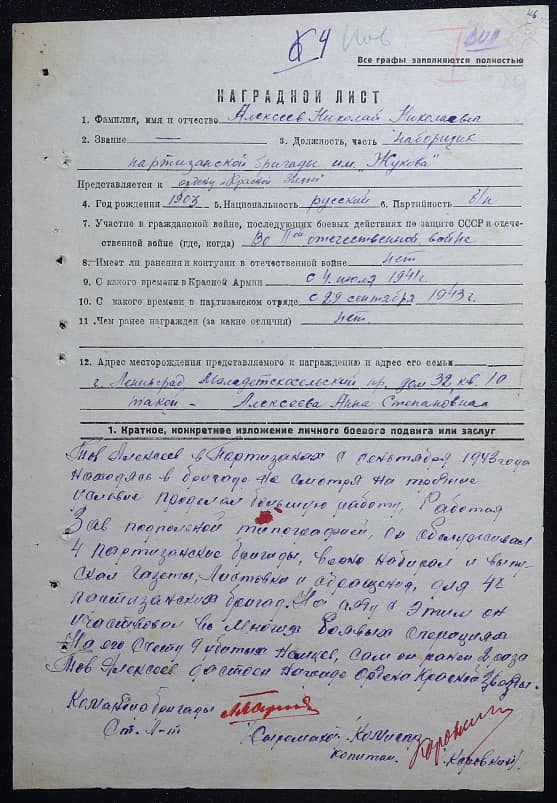 46
4
Все графы заполняются полностью
НАГРАДНОЙ ЛИСТ
1. Фамилия, имя и отчество Алексеев Николай Николаевич
2. Звание — 3. Должность, часть наборщик
партизанской бригады им. "Жукова"
Представляется к ордену "Красной Звезды"
4. Год рождения 1903 5. Национальность русский 6. Партийность б/п
7. Участие в гражданской войне, последующих боевых действиях по защите СССР и отече-
ственной войне (где, когда) Во IIой отечественной войне
8. Имеет ли ранения и контузии в отечественной войне нет
9. С какого времени в Красной Армии с 4 июля 1941 г.
10. С какого времени в партизанском отряде с 29 сентября 1943 г.
11. Чем ранее награжден (за какие отличия) нет.
12. Адрес месторождения представляемого к награждению и адрес его семьи
г. Ленинград пр. дом 32, кв. 10
Алексеева Анна Степановна
1. Краткое, конкретное изложение личного боевого подвига или заслуг
Тов Алексеев в Партизанах с сентября 1943 года
находясь в бригаде не смотря на
условие проделал большую работу, Работая
Зав подпольной типографией, он обслуживал
4 партизанские бригады, набирал и выпу-
скал газеты, листовки и обращения, для 4х
партизанских бригад. На ряду с этим он
участвовал во многих боевых операциях
На его счету 9 убитых немцев, сам он ранен 2 раза
Тов Алексеев достоен награде Ордена Красной Звезды.
Командир бригады
Ст. Л-т
Комиссар
капитан